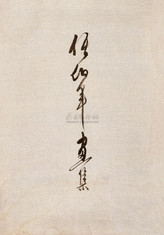 任伯年画集